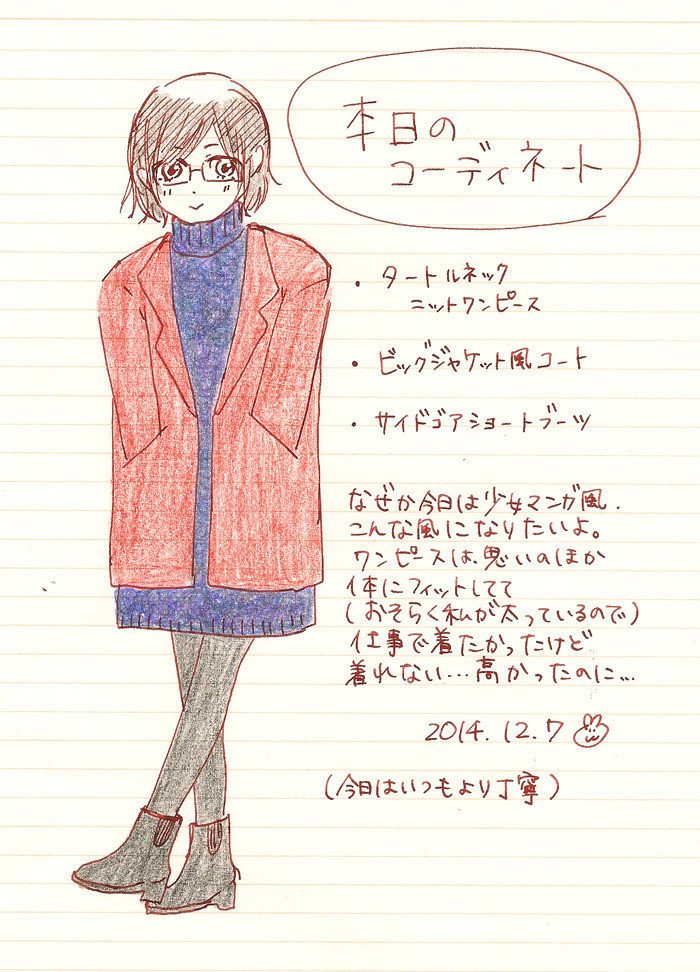 本日の
コーディネート
・タートルネック
ニットワンピース
・ビッグジャケット風コート
・サイドゴアショートブーツ
なぜか今日は少女マンガ風.
こんな風になりたいよ。
ワンピースは、思いのほか
体にフィットしてて
(おそらく私が太っているので)
仕事で着たかったけど
着れない…高かったのに…
2014.12.7
(今日はいつもより丁寧)